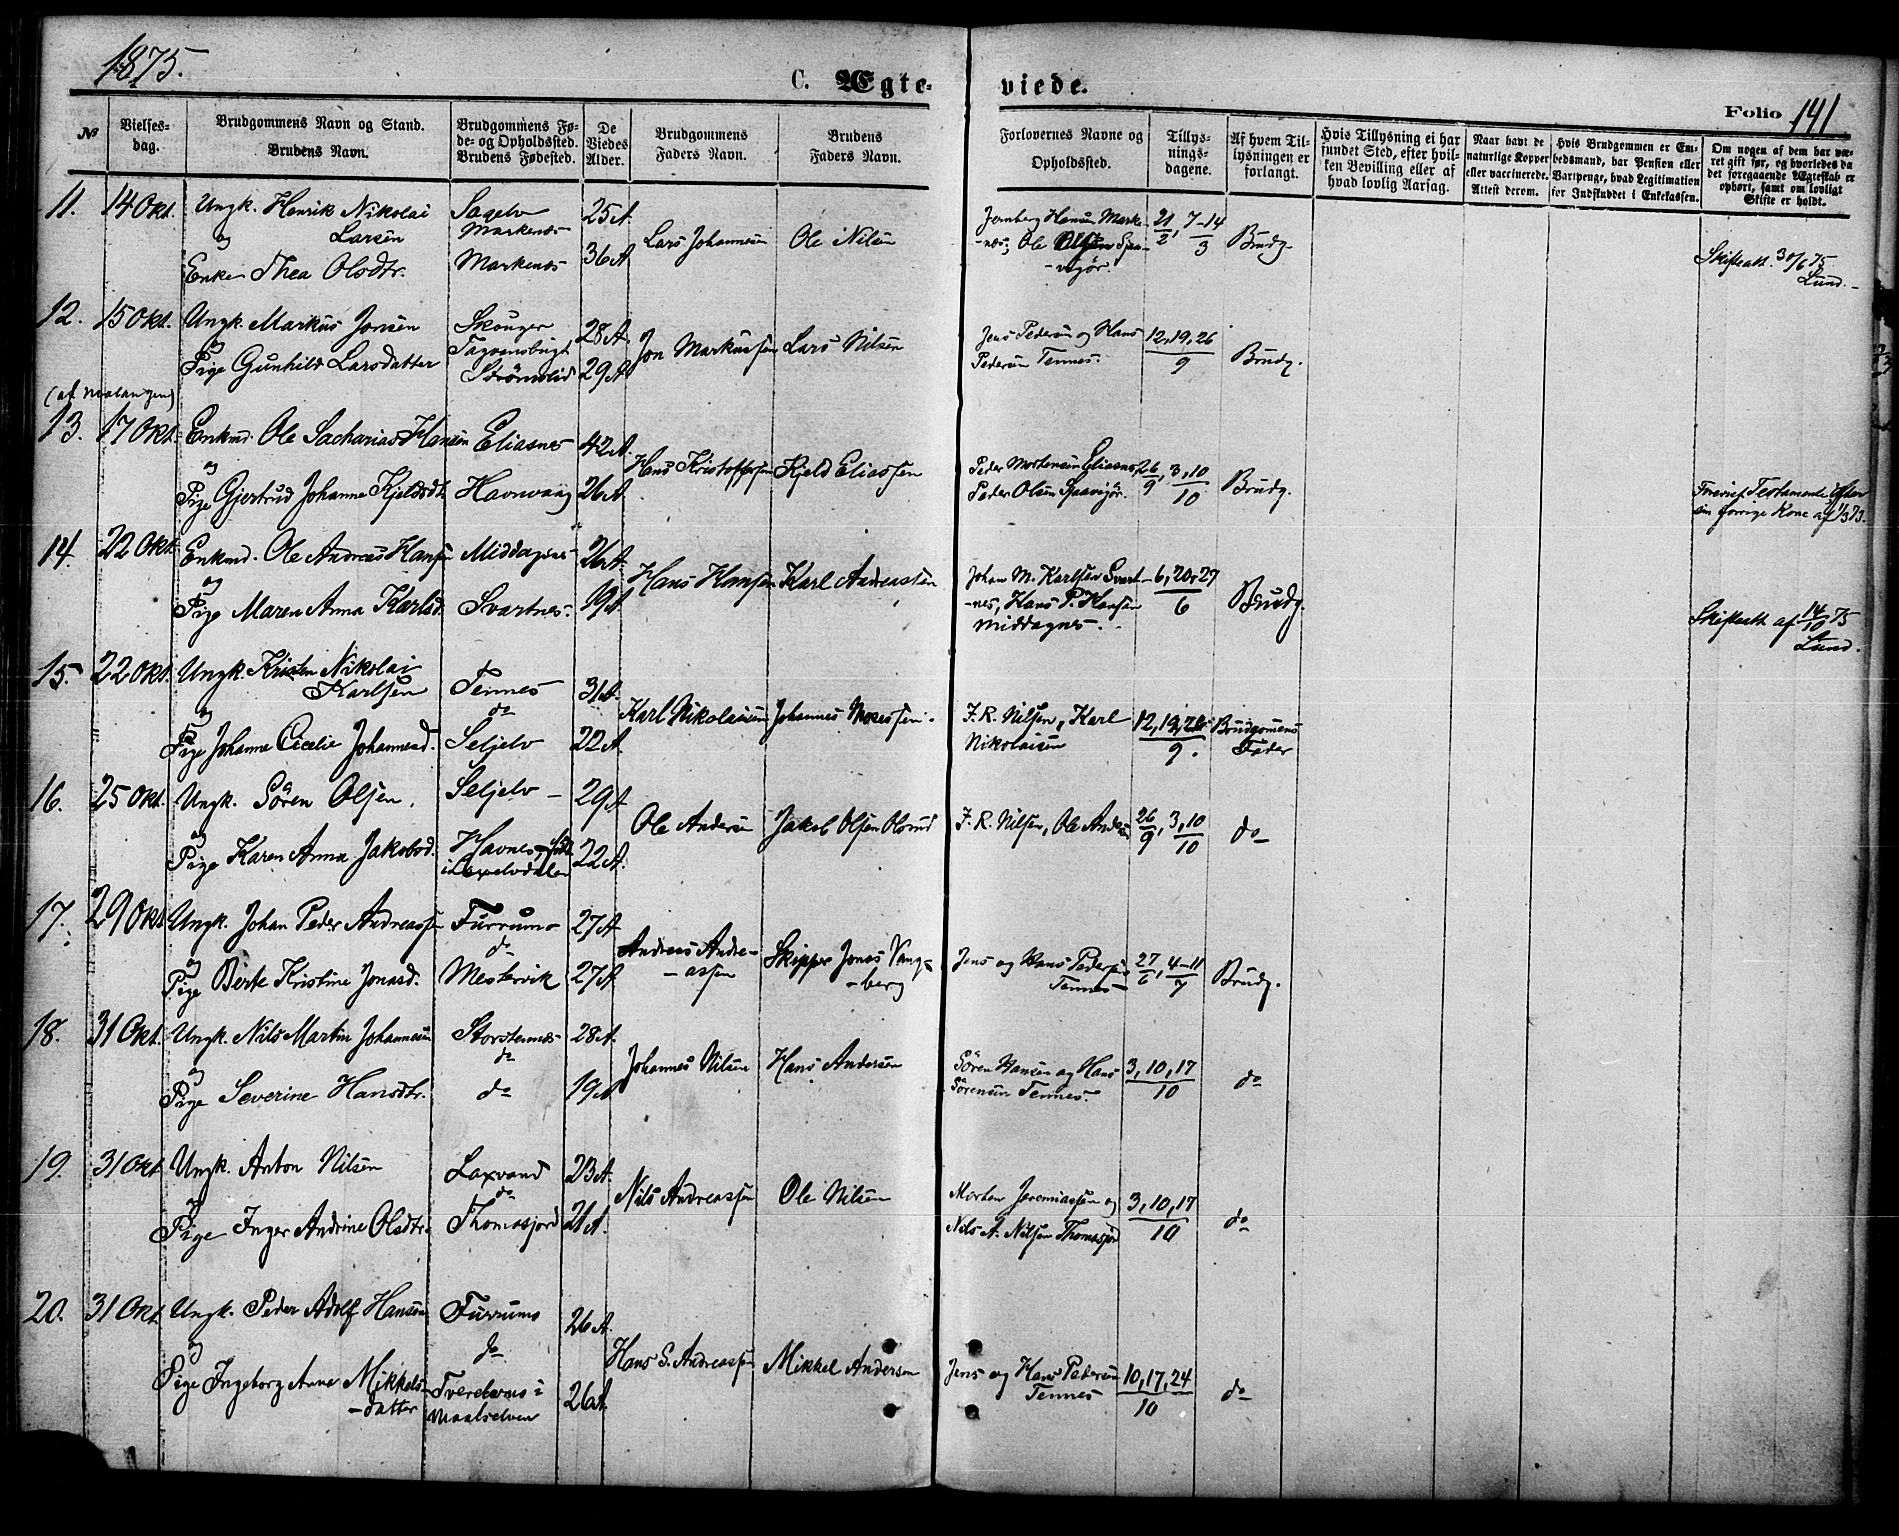 1875.
C. Ægte-
viede.
Folio 141
№
Vielses-
dag.
Brudgommens Navn og Stand.
Brudens Navn.
Brudgommens Fø-
de- og Opholdssted.
Brudens Fødested.
De
Viedes
Alder.
Brudgommens
Faders Navn.
Brudens
Faders Navn.
Forlovernes Navne og
Opholdssted.
Tillys-
nings-
dagene.
Af hvem Til-
lysningen er
forlangt.
Hvis Tillysning ei har
fundet Sted, efter hvil-
ken Bevilling eller af
hvad lovlig Aarsag.
Naar havt de
naturlige Kopper
eller vaccinerede.
Attest derom.
Hvis Brudgommen er Em-
bedsmand, har Pension eller
Vartpenge, hvad Legitimation
for Indskuddet i Enkekassen.
Om nogen af dem har væ-
ret gift før, og hvorledes da
det foregaaende Ægteskab er
ophørt, samt om lovligt
Skifte er holdt.
11. 14 Okt. Ungk. Henrik Nikolai
Larsen
og
Enke Thea Olsdtr.
Sagelv
Markenes
Markenes
25 A.
36 A
Lars Johannesen
Ole Nilsen
Jernberg Hansen Marke-
-nes, Ole Olsen Spaa-
-vigör.
21/2, 7-14/3
Brudg.
Skifteatt. 30/6 75
Lund.
12. 15 Okt. Ungk. Markus Jonsen
og
Pige Gunhild Larsdatter
Skouger
Tagvensbugt
Strömslid
28 A.
29 A
Jon Markussen
Lars Nilsen
Jens Pedersen og Hans
Pedersen Tennes.
12, 19, 26/9
Brudg.
(af Malangen)
13. 17 Okt. Enkmd. Ole Sacharias Hansen
og
Pige Gjertrud Johanna Kjeldsdt.
Eliasnes
Havnvaag
42 A.
26 A.
Hans Kristoffersen
Kjeld Eliassen
Peder Mortensen Eliasnes
Peder Olsen Spaavigör.
26/9, 3, 10/10
Brudg.
Forevist Testamente efter
sin forrige Kone af 1/3 73.
14. 22 Okt. Enkmd. Ole Andreas Hansen
og
Pige Maren Anna Karlsd.
Middagsnes
Svartnes.
26 A.
19 A.
Hans Hansen
Karl Andreassen
Johan M. Karlsen Svart-
-nes, Hans P. Hansen
Middagnes.
6, 20, 27/6
Brudg.
Skifteatt af 14/10 75
Lund.
15. 22 Okt. Ungk. Kristen Nikolai
Karlsen
og
Pige Johanna Cicelie Johannesd.
Tennes
do
Seljelv
31 A.
22 A.
Karl Nikolaisen
Johannes Mosessen.
F. R. Nilsen, Karl
Nikolaisen
12, 19, 26/9.
Brudgomens
Fader
16. 25 Okt. Ungk. Sören Olsen.
og
Pige Karen Anna Jakobsd.
Seljelv
Havnes, født
i Laxelvdalen
29 A
22 A.
Ole Andersen
Jakob Olsen Olsrud
F. R. Nilsen, Ole Andersen
26/9, 3, 10/10
do
17. 29 Okt. Ungk. Johan Peder Andreassen
og
Pige Berte Kristine Jonasd.
Furrumo
do
Mestervik
27 A.
27 A.
Andreas Andre-
-assen
Skipper Jonas Vang-
-berg
Jens og Hans Pedersen
Tennes
27/6, 4-11/7
Brudg.
18. 31 Okt. Ungk. Nils Martin Johannesen
og
Pige Severine Hansdtr.
Storstennes
do
do
28 A.
19 A.
Johannes Nilsen
Hans Andersen
Sören Hansen og Hans
Sörensen Tennes.
3, 10, 17/10
do
19. 31 Okt. Ungk. Anton Nilsen
og
Pige Inger Andrine Olsdtr.
Laxvand
do
Thomasjord
23 A.
21 A.
Nils Andreassen
Ole Nilsen
Morten Jeremiassen og
Nils A. Nilsen Thomasjord
3, 10, 17/10
do
20. 31 Okt. Ungk. Peder Adolf Hansen
og
Pige Ingeborg Anna Mikkels-
-datter
Furrumo
do
Tverelvmo i
Maalselven
26 A.
26 A.
Hans S. Andreassen
Mikkel Andersen
Jens og Hans Pedersen
Tennes
10, 17, 24/10
do